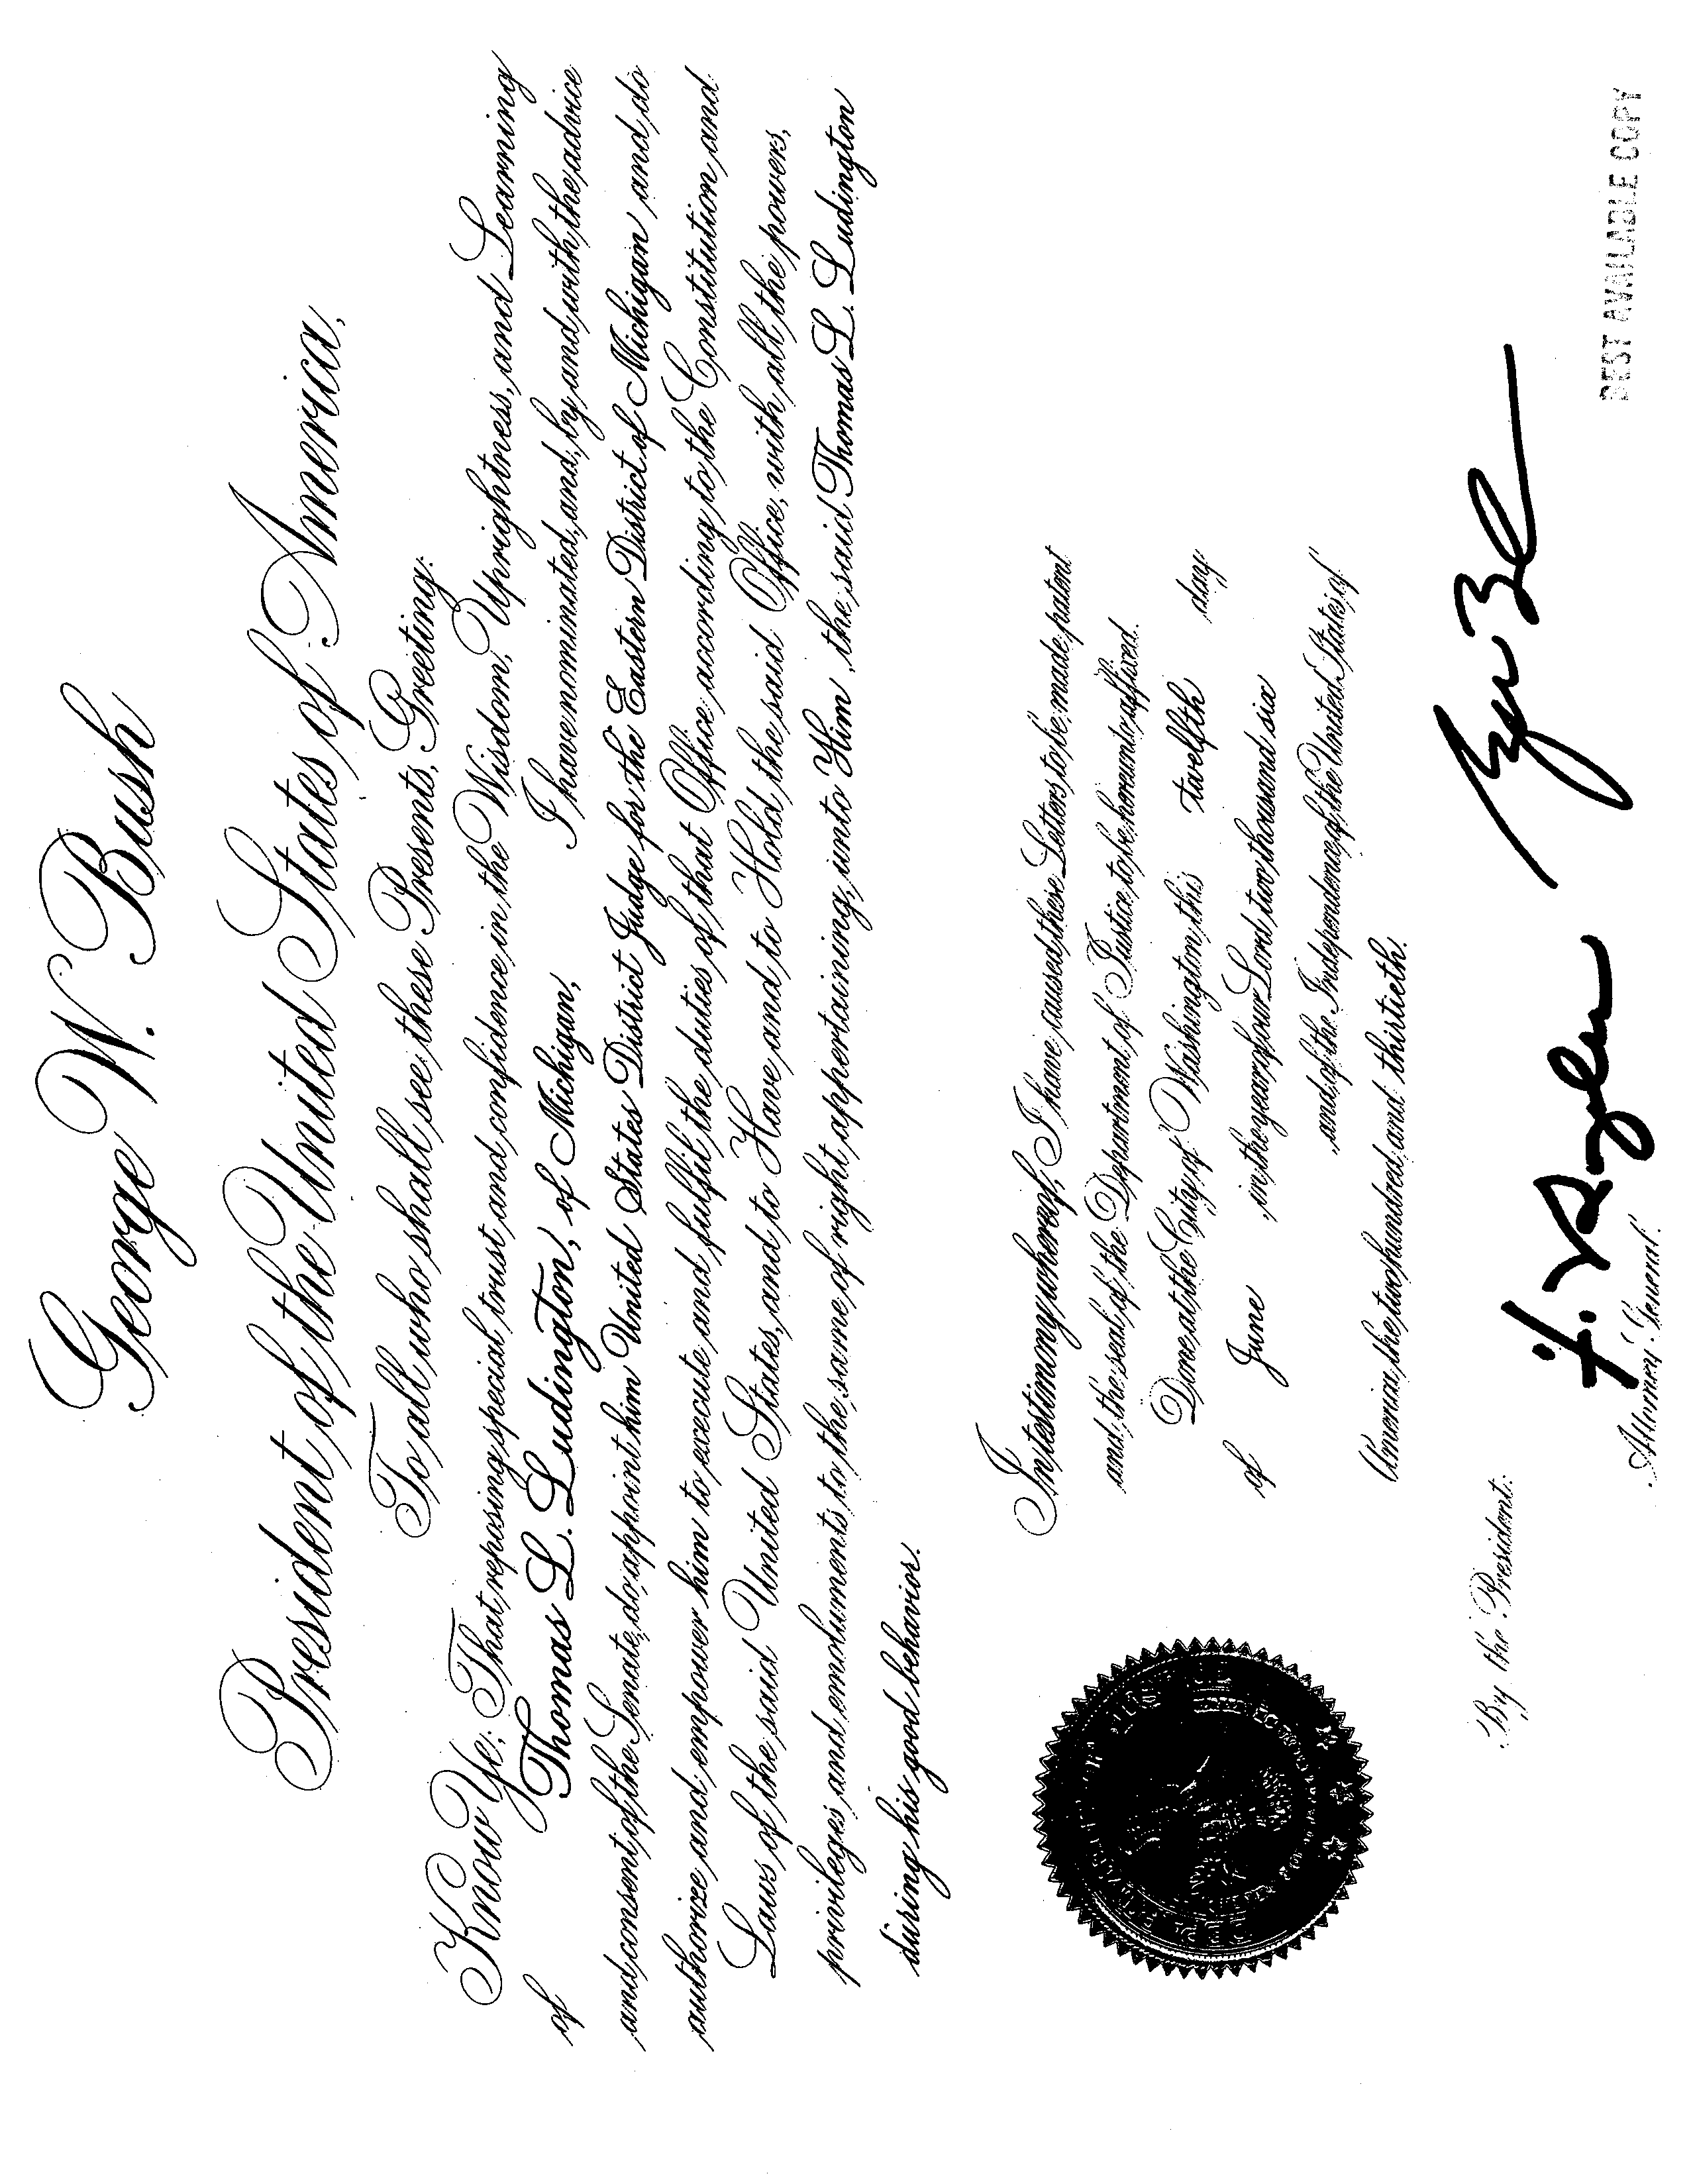 George W. Bush
President of the United States of America,
To all who shall see these Presents, Greeting:
Know Ye; That reposing special trust and confidence in the Wisdom, Uprightness, and Learning
of Thomas L. Ludington, of Michigan, I have nominated, and, by and with the advice
and consent of the Senate, do appoint him United States District Judge for the Eastern District of Michigan and do
authorize and empower him to execute and fulfil the duties of that Office according to the Constitution and
Laws of the said United States, and to Have and to Hold the said Office, with all the powers,
privileges and emoluments to the same of right appertaining, unto Him, the said Thomas L. Ludington
during his good behavior.
In testimony whereof, I have caused these Letters to be made patent
and the seal of the Department of Justice to be hereunto affixed.
Done at the City of Washington this twelfth day
of June in the year of our Lord two thousand six
and of the Independence of the United States of
America the two hundred and thirtieth.
By the President:
Attorney General.
BEST AVAILABLE COPY